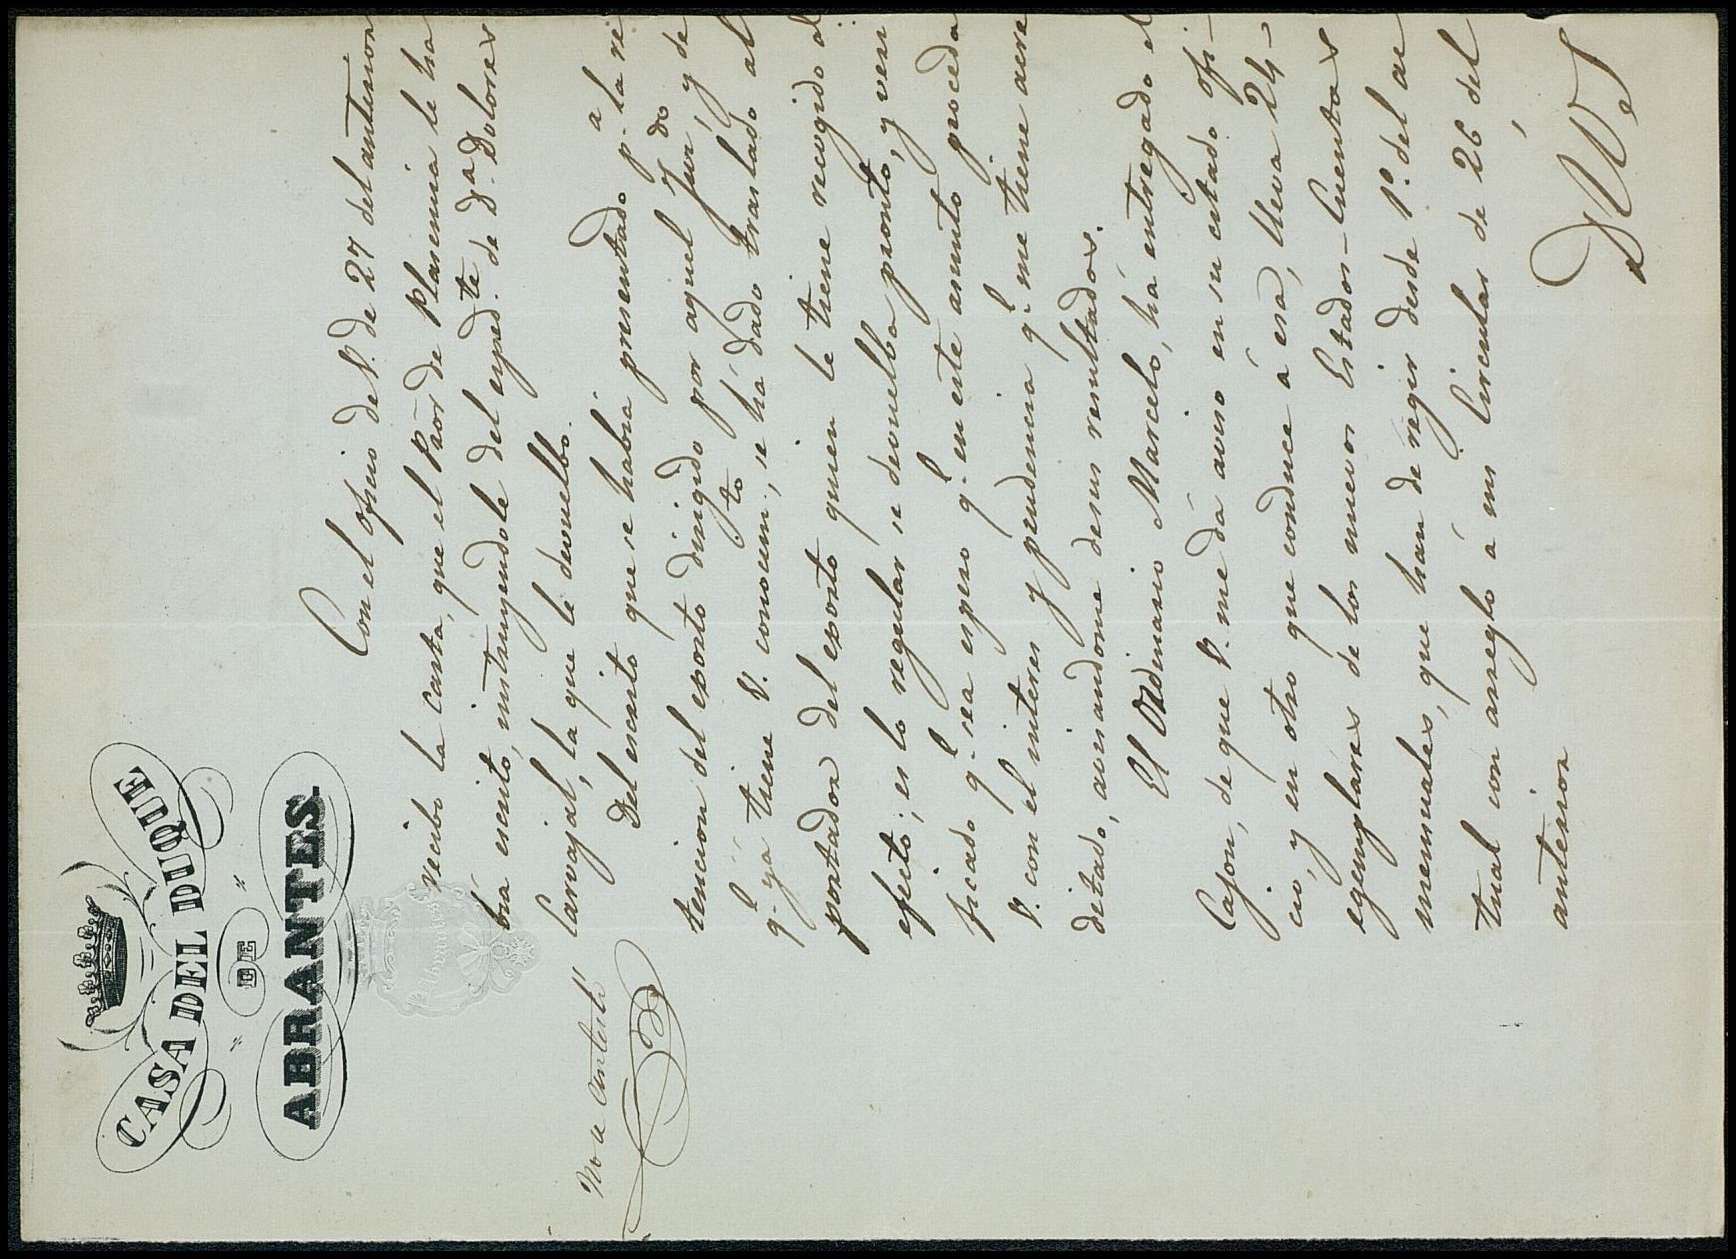 CASA DEL DUQUE
DE
ABRANTES.
Con el oficio de V. de 27 del anterior
recibo la carta, que el Pror. de Plasencia le ha
bia escrito, instruyendole del exped.te de D.a Dolores
Carvajal, la que le devuelbo.
Del escrito que se habia presentado p.a la re
tencion del exorto dirigido por aquel Juz.do, y de
q.e ya tiene V. conocim.to, se há dado traslado al
portador del exorto quien le tiene recogido al
efecto; es lo regular se devuelba pronto, y veri
ficado q.e sea espero q.e en este asunto proceda
V. con el interes y prudencia q.e me tiene acre
ditado, avisandome de sus resultados.
El Ordinario Marcelo, há entregado el
Cajon, de que V. me dá aviso en su citado ofi-
cio, y en otro que conduce á esa, lleva 24-
egemplares de los nuevos Estados-Cuentas
mensuales, que han de regir desde 1.o del ac
tual con arreglo á mi Circular de 26 del
anterior
No a Contestó